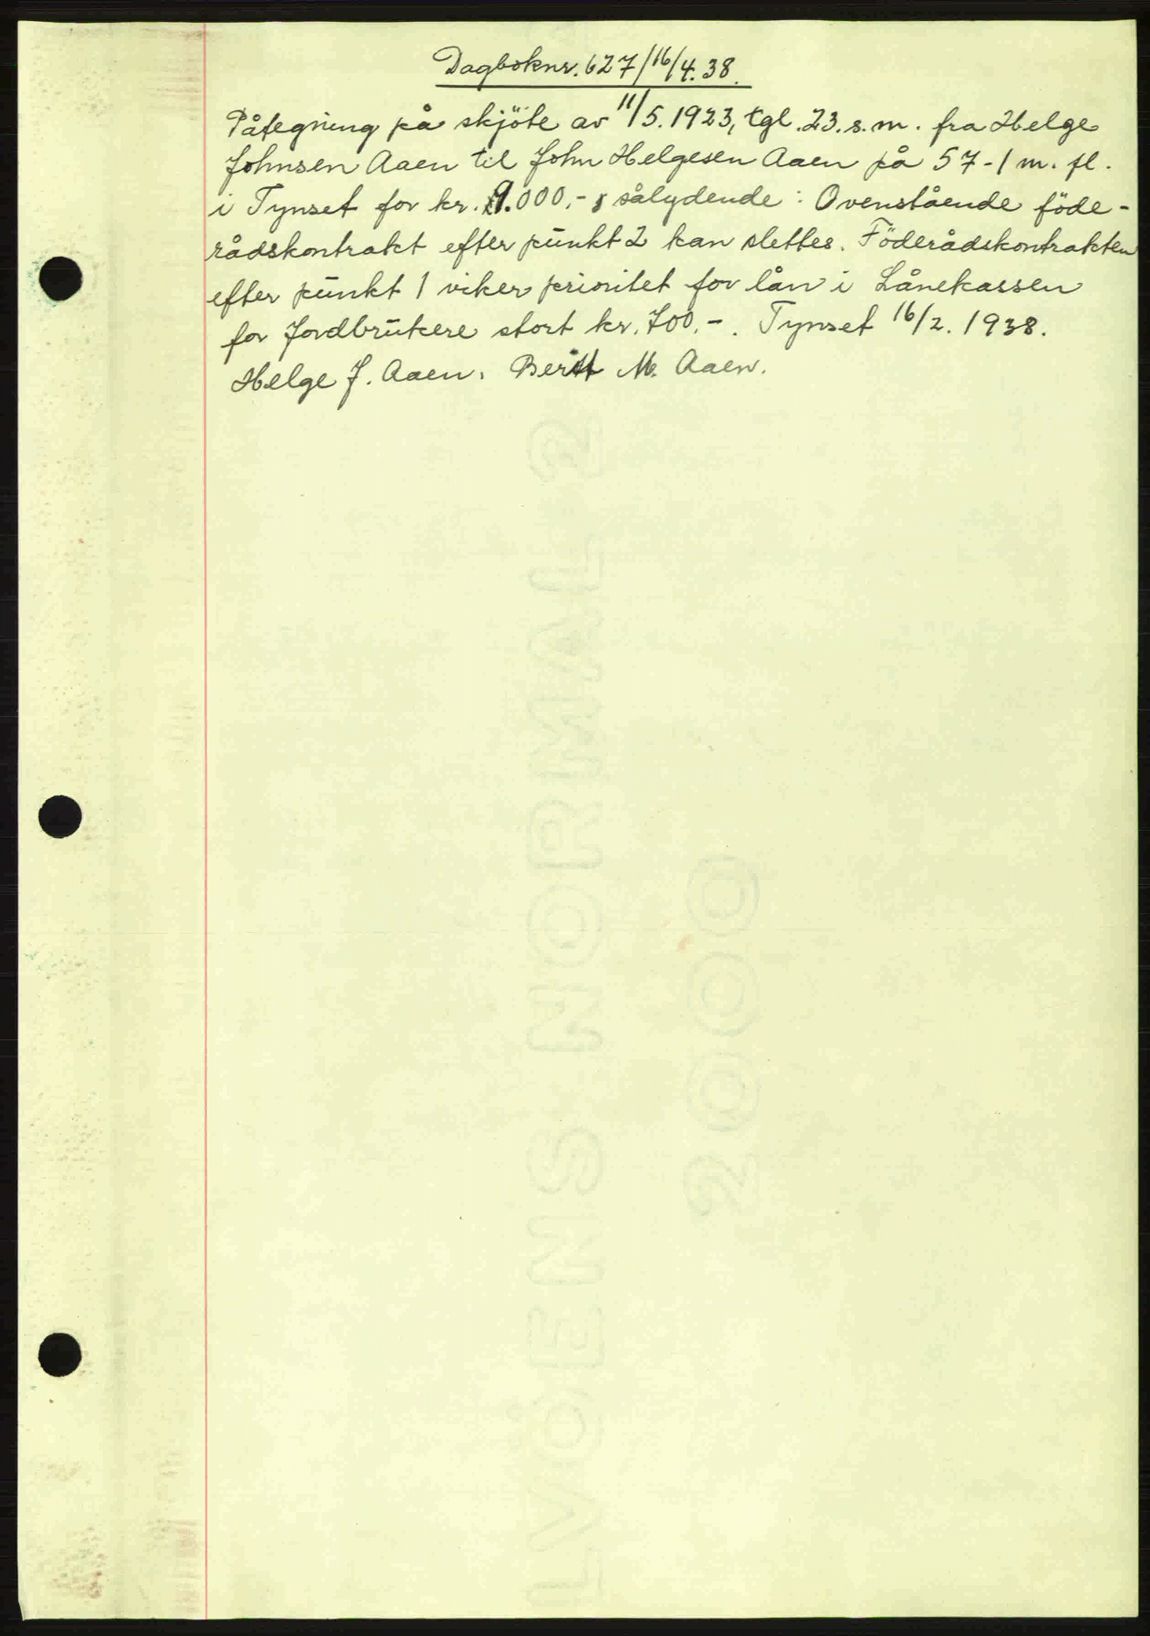 Dagboknr. 627/16/4.38.
Påtegning på skjöte av 11/5.1923, tgl. 23. s.m. fra Helge
Johnsen Aaen til John Helgesen Aaen på 57-1 m. fl.
i Tynset for kr. 9.000,- sålydende: Ovenstående föde-
rådskontrakt efter punkt 2 kan slettes. Föderådskontrakten
efter punkt 1 viker prioritet for lån i Lånekassen
for Jordbrukere stort kr. 700,-. Tynset 16/2. 1938.
Helge J. Aaen. Berit M. Aaen.
LVÖENS NORMAL 2
2000